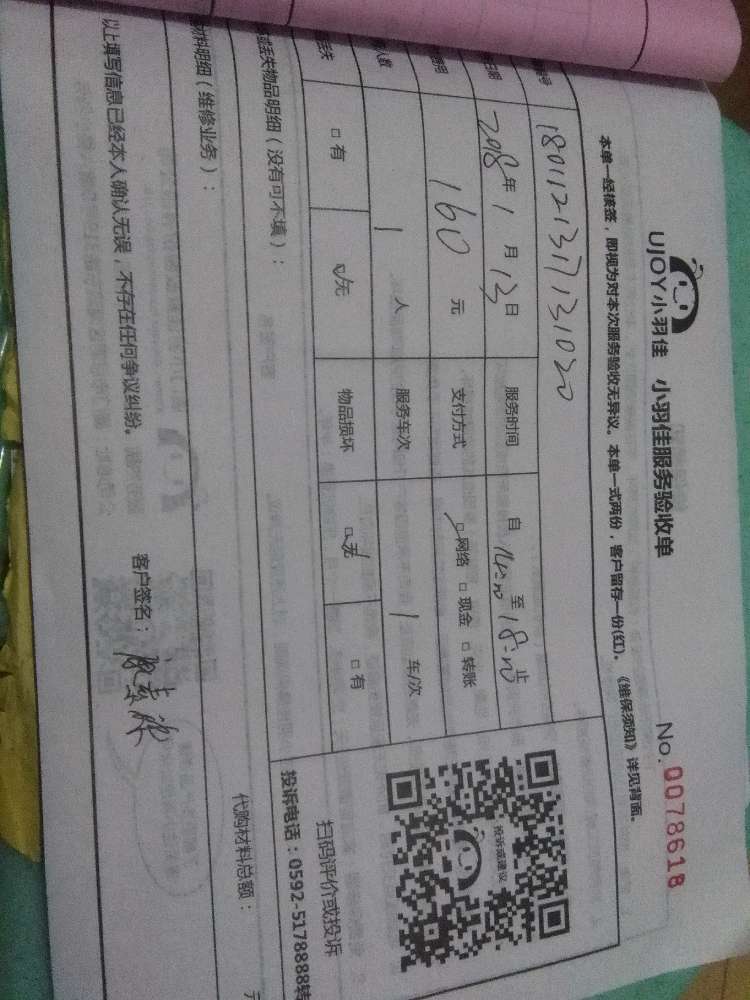 UJOY小羽佳 小羽佳服务验收单
No. 0078618
本单一经核签，即视为对本次服务验收无异议。本单一式两份，客户留存一份(红)。《维保须知》详见背面。
号 18011213171131020
日期 2018年1月13日 服务时间 自14:00至18:00止
费用 160元 支付方式 网络 现金 转账
人数 1人 服务车次 1车/次
丢失 有 无 物品损坏 无 有
投诉或建议
扫码评价或投诉
投诉电话：0592-5178888转
或丢失物品明细（没有可不填）：
材料明细（维修业务）：
代购材料总额： 元
以上填写信息已经本人确认无误，不存在任何争议纠纷。
客户签名：